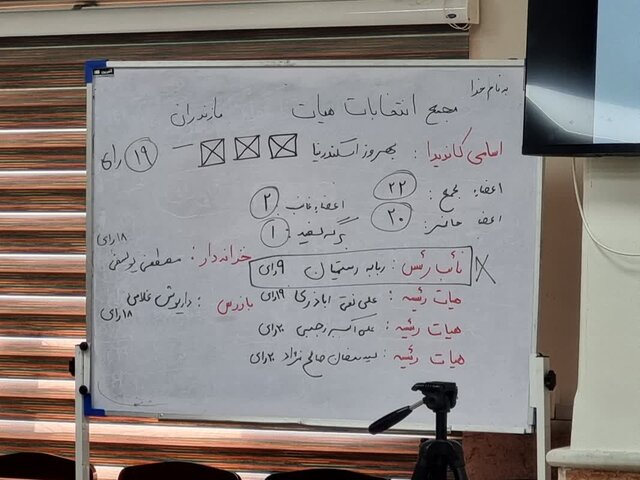 به نام خدا
مجمع انتخابات هیات مازندران
اسامی کاندیدا : بهروز اسکندرنیا ۱۹ رای
اعضاء مجمع : ۲۲
اعضاء غائب ۲
اعضا حاضر : ۲۰
برگه سفید : ۱
نائب رئیس : ربابه رستمیان ۹ رای
خزانه دار : مصطفی یوسفی ۱۸ رای
هیات رئیسه : علی نقی اباذری ۱۹ رای
بازرس : داریوش غلامی ۱۸ رای
هیات رئیسه : علی اکبر رجبی ۲۰ رای
هیات رئیسه : صالح نژاد ۲۰ رای